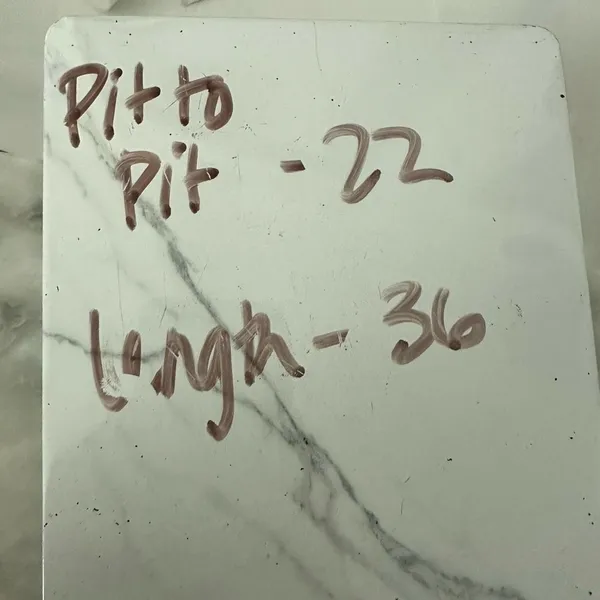 Pit to
Pit - 22
Length - 36